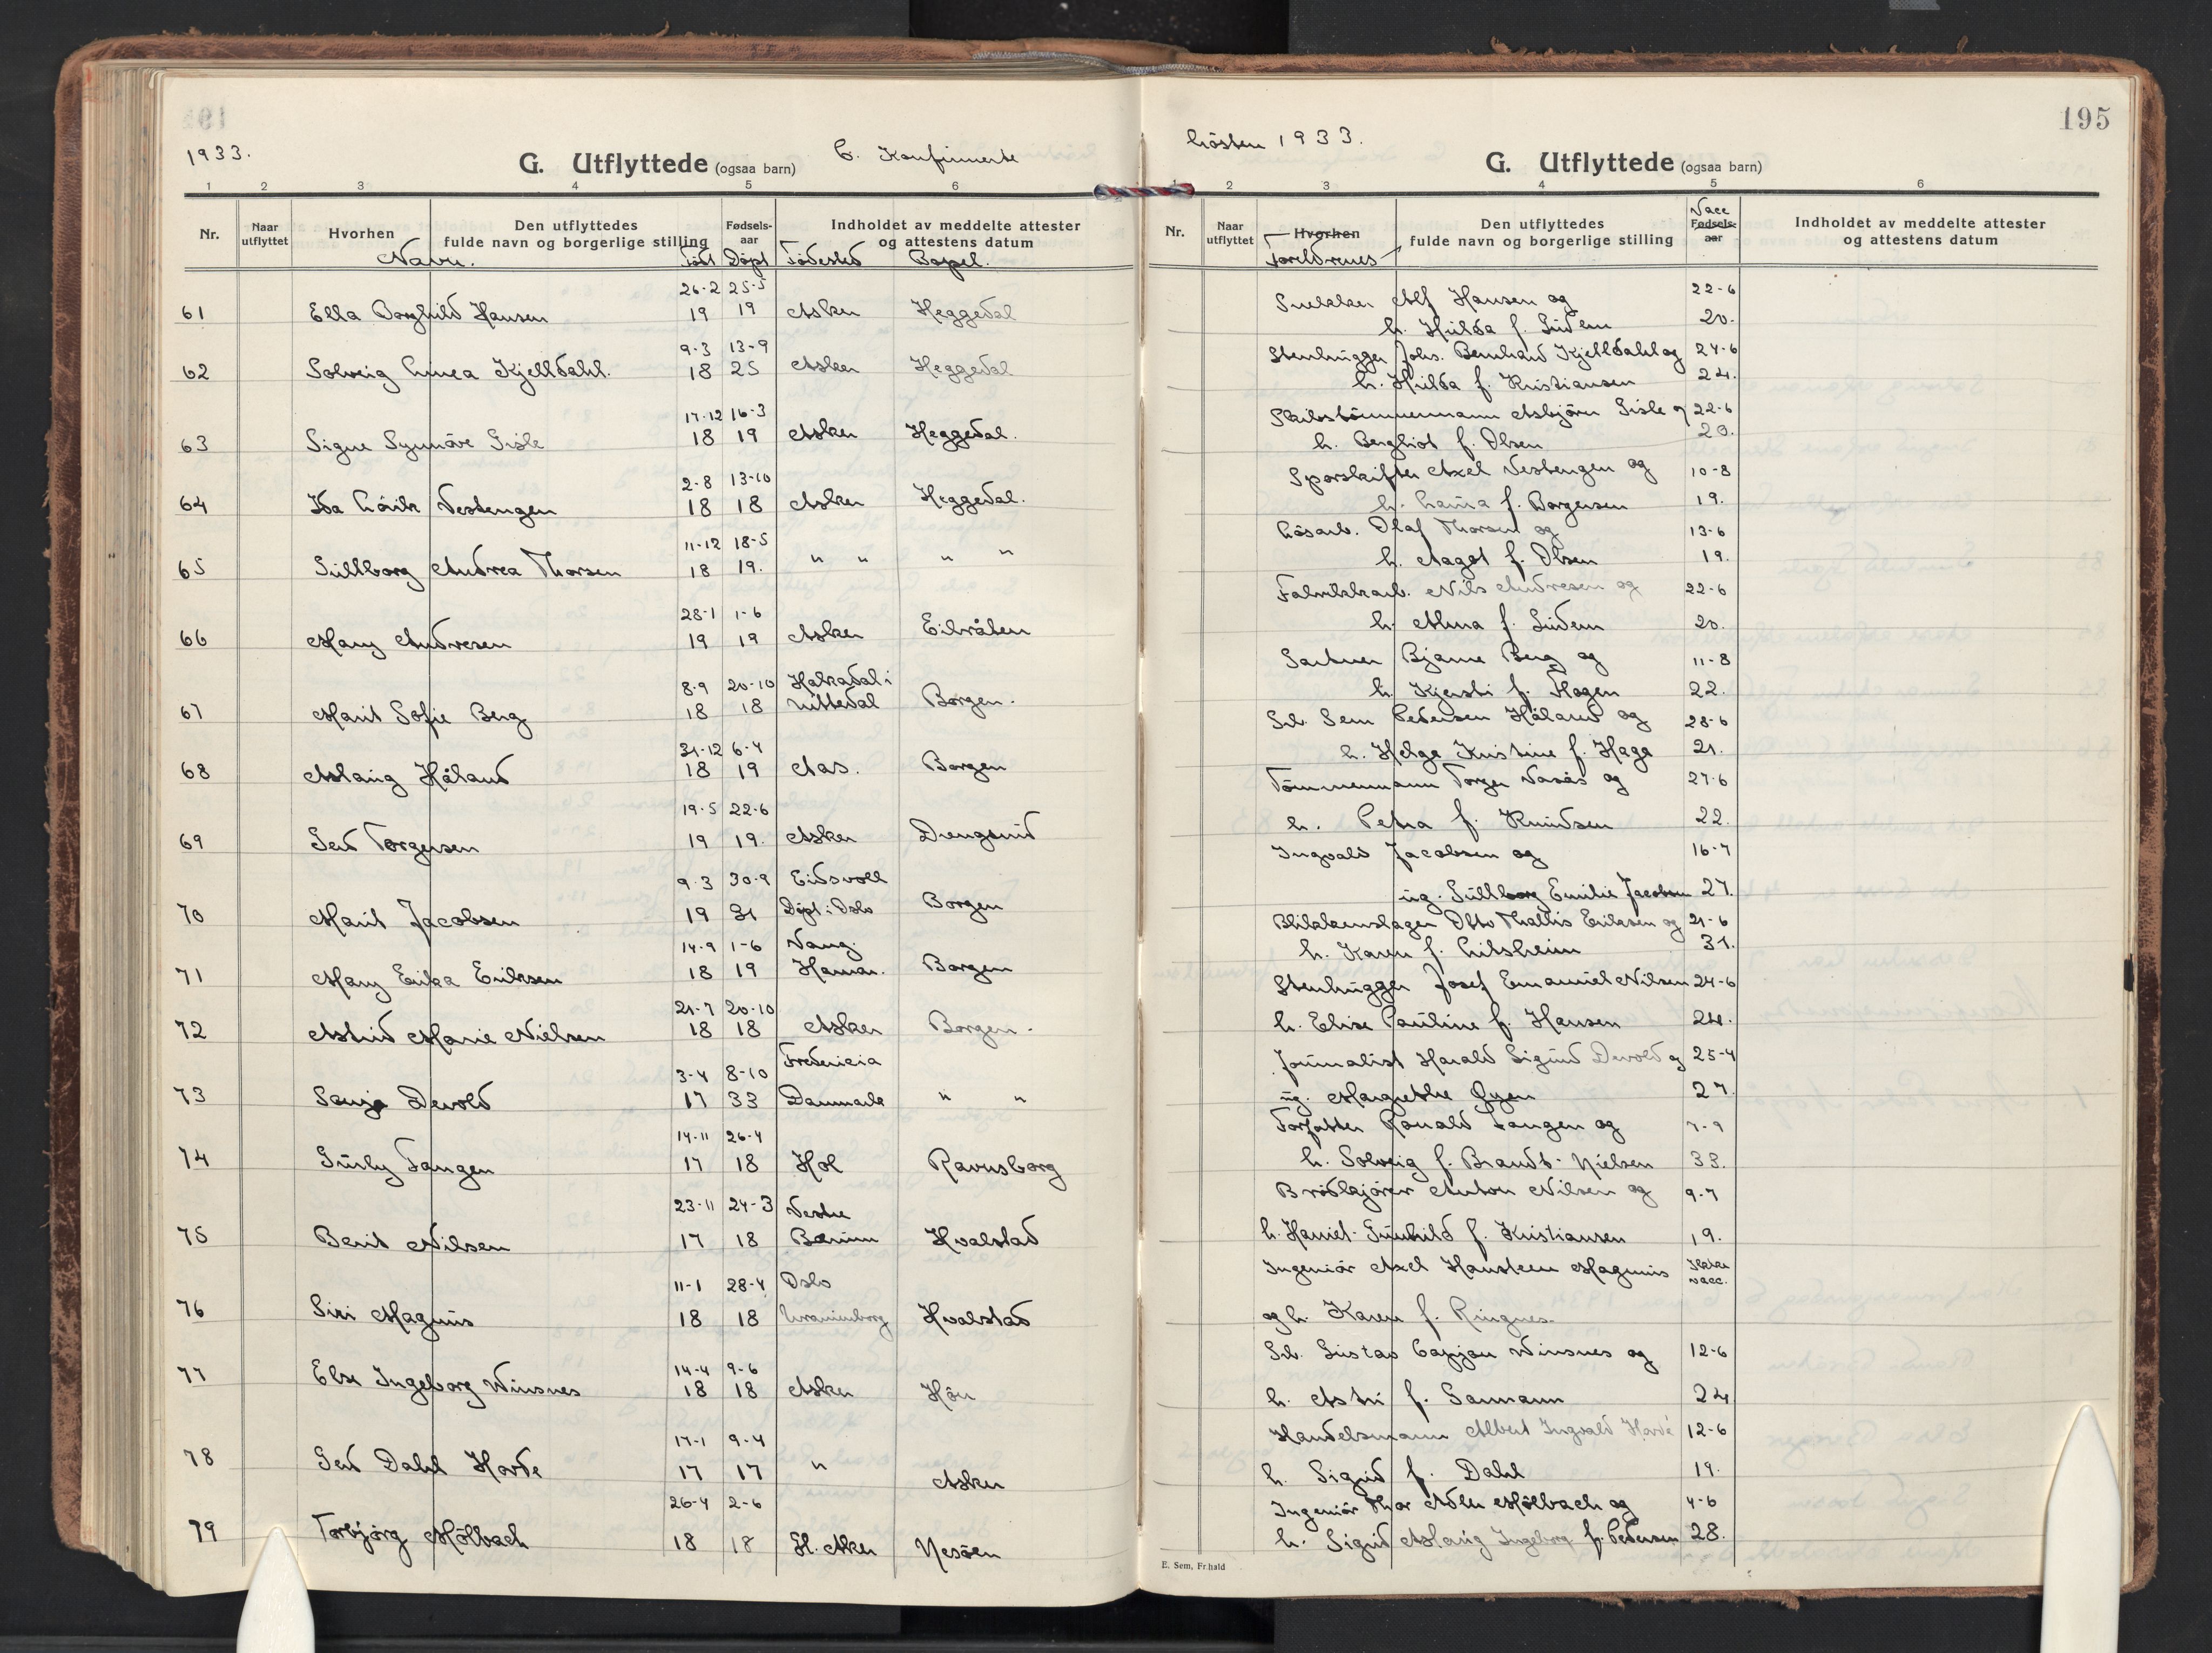 1933.
G. Utflyttede (ogsaa barn)
C. Konfirmerte
1 2 3 4 5 6
Nr. Naar utflyttet Hvorhen Den utflyttedes fulde navn og borgerlige stilling Fødsels-aar Indholdet av meddelte attester og attestens datum
Navn. Født Døpt Fødested Bopel.
26-2 25-5
61 Ella Borghild Hansen 19 19 Asker Heggedal
9-3 13-9
62 Solveig Linea Kjelldahl. 18 25 Asker Heggedal
17-12 16-3
63 Signe Synnöve Gisle 18 19 Asker Heggedal.
2-8 13-10
64 Vestengen 18 18 Asker Heggedal.
11-12 18-5
65 Gullborg Andrea Thorsen 18 19. " " " "
28-1 1-6
66 Mary Andresen 19 19 Asker Eikråten
8-9 20-10 Hakadal i
67 Marit Sofie Berg 18 18 Nittedal Borgen.
31-12 6-4
68 Aslaug Håland 18 19 Aas. Borgen
19-5 22-6
69 Gerd Torgersen 19 19. Asker Drengsrud
9-3 30-9 Eidsvoll
70 Marit Jacobsen 19 31 Döpt i Oslo Borgen
14-9 1-6 Vang.
71 Mary Erika Eriksen 18 19 Hamar. Borgen
21-7 20-10
72 Astrid Marie Nielsen 18 18 Asker Borgen.
Fredericia
3-4 8-10
73 Sonja Devold 17 33 Danmark " "
14-11 26-4
74 Guly Fangen 17 18 Hol Ravnsborg
23-11 24-3 Vestre
75 Berit Nilsen 17 18 Bærum Hvalstad
11-1 28-4 Oslo
76 Siri Magnus 18 18 Uranienborg Hvalstad
14-4 9-6
77 Else Ingeborg Winsnes 18 18 Asker Hön
17-1 9-4
78 Gerd Dahl Horde 17 17 " Asker
26-4 2-6
79 Torbjörg Mölbach 18 18 V. Aker Nesöen
195
hösten 1933.
G. Utflyttede (ogsaa barn)
1 2 3 4 5 6
Nr. Naar utflyttet Hvorhen Den utflyttedes fulde navn og borgerlige stilling Vacc Fødsels-aar Indholdet av meddelte attester og attestens datum
Foreldrenes
Snekker Alf Hansen og 22-6
h. Hilda f. Gudem 20.
Stenhugger Johs. Bernhard Kjelldahl og 24-6
h. Hilda f. Kristiansen 24.
Skibstömmermann Asbjörn Gisle og 22-6
h. Bergliot f. Olsen 20.
Sporskifter Axel Vestengen og 10-8
h. Laura f. Borgersen 19.
Lösarb. Olaf Thorsen og 13-6
h. Aagot f. Olsen 19.
Fabrikkarb. Nils Andresen og 22-6
h. Alma f. Gudem 20.
Gartner Bjarne Berg og 11-8
h. Kjersti f. Hagen 22.
Gb. Sem Pedersen Håland og 28-6
h. Helga Kristine f. Haga 21.
Tömmermann Torger Vasås og 27-6
h. Petra f. Knudsen 22.
Ingvald Jacobsen og 16-7
ug. Gullborg Emilie Jacobsen 27.
Blikkenslager Otto Thallis Eriksen og 21-6
h. Karen f. Litsheim 31.
Stenhugger Josef Emanuel Nilsen 24-6
h. Elise Pauline f. Hansen 24.
Journalist Harald Sigurd Devold og 25-4
ug. Margrethe Gyen 27.
Forfatter Ronald Fangen og 7-9
h. Solveig f. Brandt-Nielsen 33.
Brödkjörer Anton Nilsen og 9-7
h. Harriet Gunhild f. Kristiansen 19.
Ingeniör Axel Hansteen Magnus Ikke vacc.
og h. Karen f. Ringnes.
Gb. Gustav Cappjan Winsnes og 12-6
h. Astri f. Saxmann 24
Handelsmann Albert Ingvald Horde 12-6
h. Sigrid f. Dahl 19.
Ingeniör Thor Adler Mölbach og 4-6
h. Sigrid Aslaug Ingeborg f. Pedersen 28.
E. Sem, Fr.hald